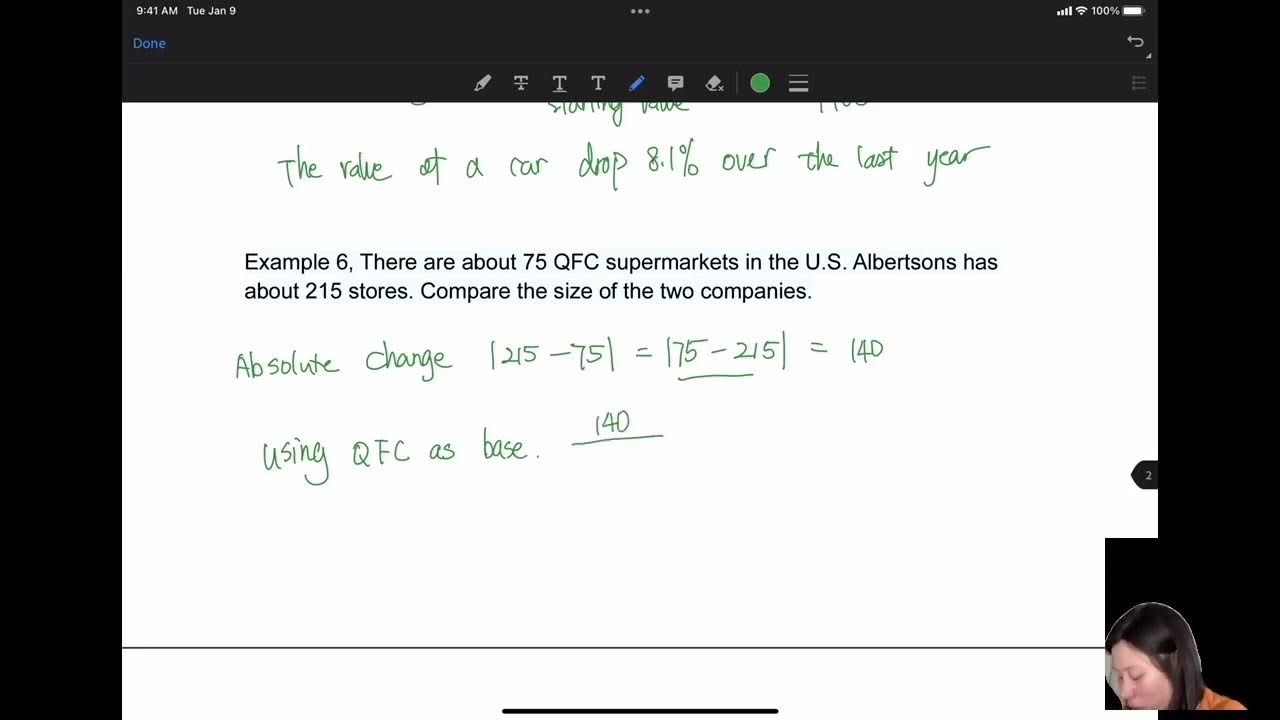 9:41 AM Tue Jan 9
100%
Done
starting value
The value of a car drop 8.1% over the last year
Example 6, There are about 75 QFC supermarkets in the U.S. Albertsons has
about 215 stores. Compare the size of the two companies.
Absolute change |215 - 75| = |75 - 215| = 140
140
Using QFC as base.
2